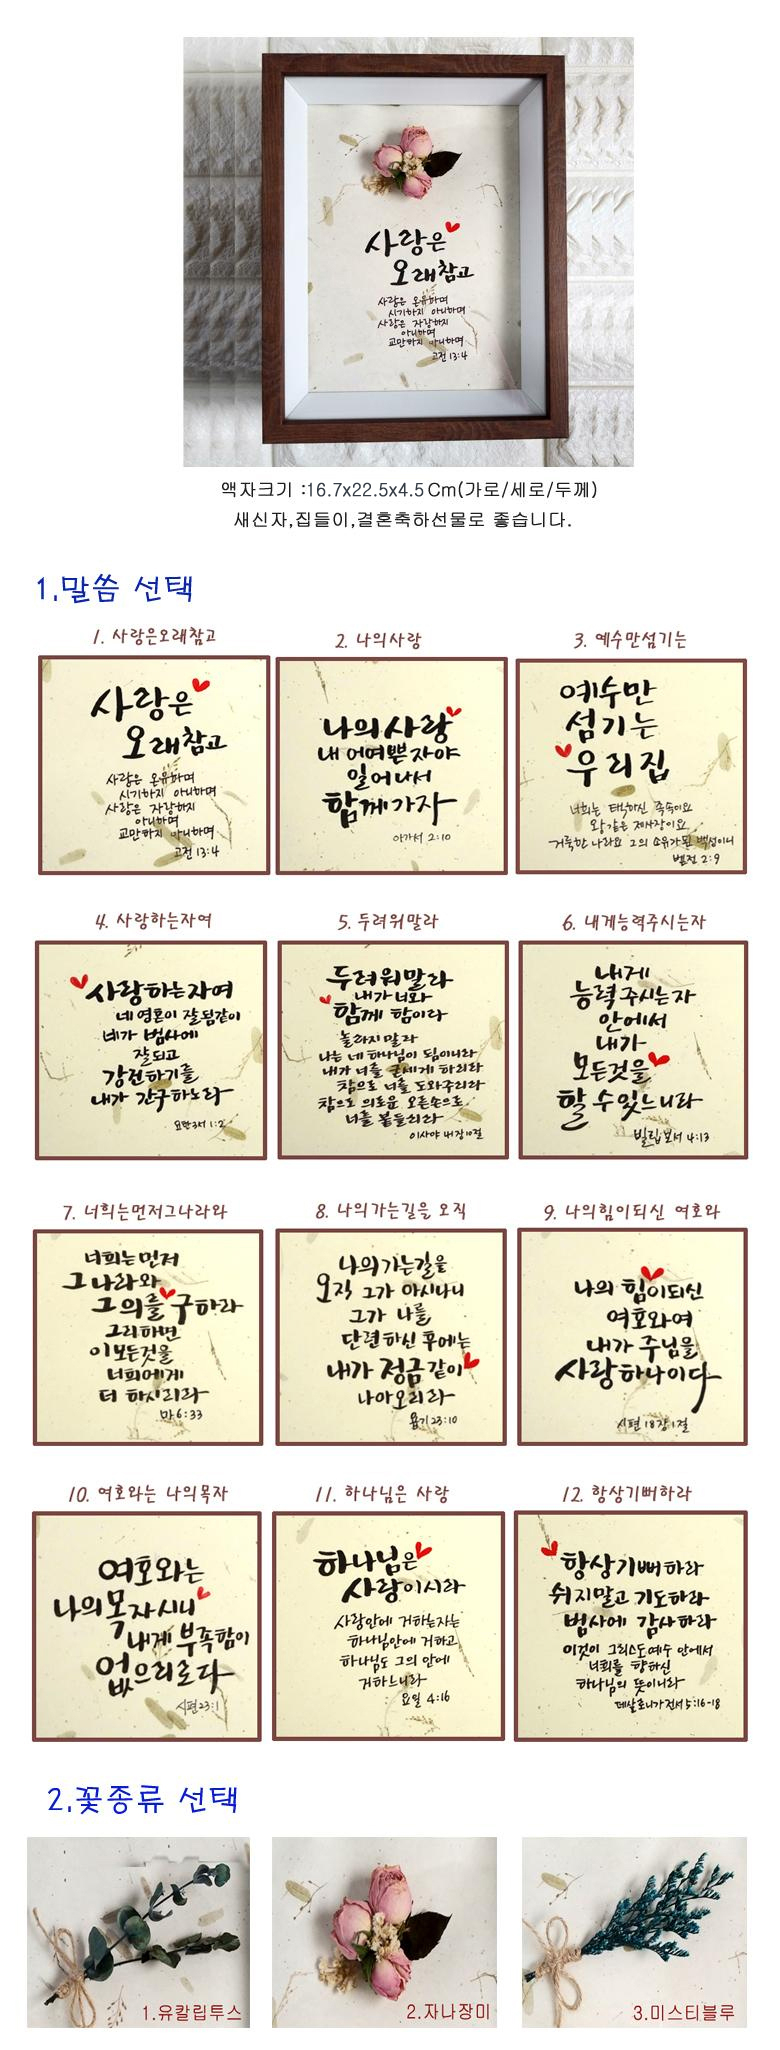 사랑은
오래참고
사랑은 온유하며
시기하지 아니하며
사랑은 자랑하지
아니하며
교만하지 아니하며
고전 13:4
액자크기 :16.7x22.5x4.5Cm(가로/세로/두께)
새신자,집들이,결혼축하선물로 좋습니다.
1.말씀 선택
1. 사랑은오래참고
사랑은
오래참고
사랑은 온유하며
시기하지 아니하며
사랑은 자랑하지
아니하며
교만하지 아니하며
고전 13:4
2. 나의사랑
나의사랑
내 어여쁜자야
일어나서
함께가자
아가서 2:10
3. 예수만섬기는
예수만
섬기는
우리집
너희는 택하신 족속이요
왕같은 제사장이요
거룩한 나라요 그의 소유가된 백성이니
벧전 2:9
4. 사랑하는자여
사랑하는자여
네영혼이 잘됨같이
네가 범사에
잘되고
강건하기를
내가 간구하노라
요한3서 1:2
5. 두려워말라
두려워말라
내가 너와
함께 함이라
놀라지말라
나는 네 하나님이 됨이니라
내가 너를 굳세게 하리라
참으로 너를 도와주리라
참으로 의로운 오른손으로
너를 붙들리라
이사야 41장10절
6. 내게능력주시는자
내게
능력주시는자
안에서
내가
모든것을
할 수 있느니라
빌립보서 4:13
7. 너희는먼저그나라와
너희는먼저
그 나라와
그의를 구하라
그리하면
이모든것을
너희에게
더 하시리라
마 6:33
8. 나의가는길을 오직
나의가는길을
오직 그가 아시나니
그가 나를
단련하신 후에는
내가 정금같이
나아오리라
욥기 23:10
9. 나의힘이되신 여호와
나의 힘이되신
여호와여
내가 주님을
사랑하나이다
시편 18장1절
10. 여호와는 나의목자
여호와는
나의목자시니
내게 부족함이
없으리로다
시편23:1
11. 하나님은 사랑
하나님은
사랑이시라
사랑안에 거하는자는
하나님안에 거하고
하나님도 그의 안에
거하느니라
요일 4:16
12. 항상기뻐하라
항상기뻐하라
쉬지말고 기도하라
범사에 감사하라
이것이 그리스도예수 안에서
너희를 향하신
하나님의 뜻이니라
데살로니가전서 5:16-18
2.꽃종류 선택
1.유칼립투스
2.자나장미
3.미스티블루